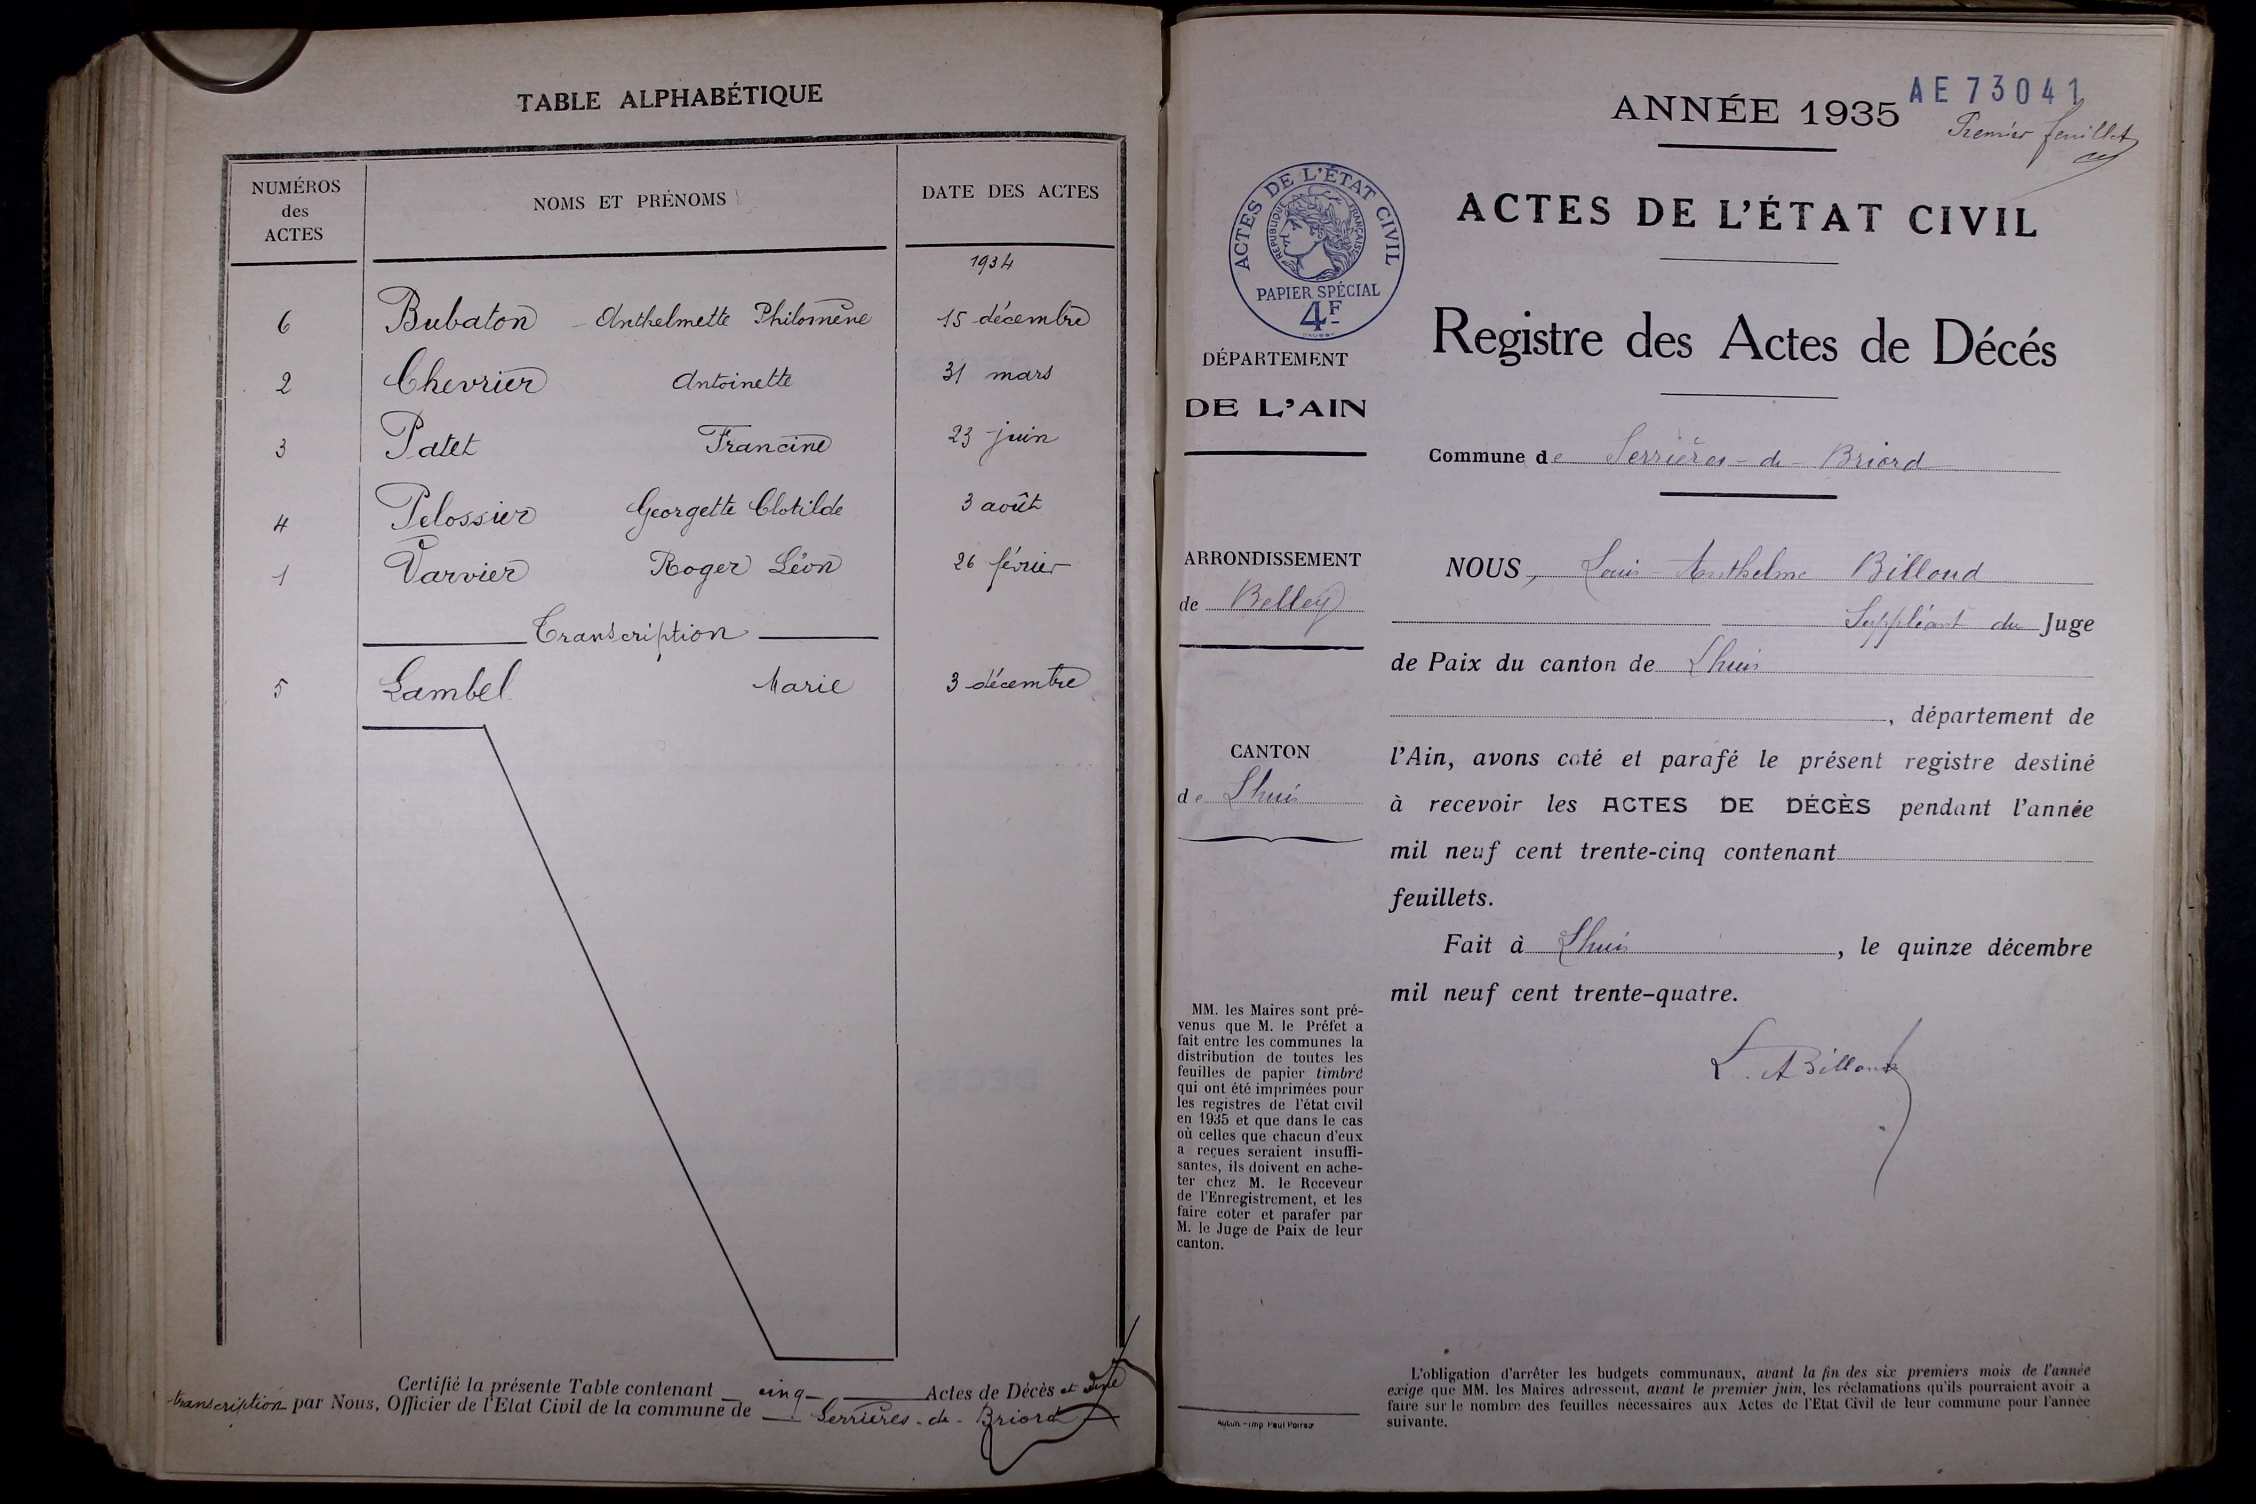 TABLE ALPHABÉTIQUE
NUMÉROS des ACTES
NOMS ET PRÉNOMS
DATE DES ACTES
1934
6 Bubaton Anthelmette Philomène 15 décembre
2 Chevrier Antoinette 31 mars
3 Patet Francine 23 juin
4 Pelossier Georgette Clotilde 3 août
1 Varvier Roger Léon 26 février
Transcription
5 Lambel Marie 3 décembre
Certifié la présente Table contenant cinq Actes de Décès et une
transcription par Nous, Officier de l'Etat Civil de la commune de Serrières-de-Briord
AE 73041
ANNÉE 1935
Premier feuillet
ACTES DE L'ÉTAT CIVIL
RÉPUBLIQUE FRANÇAISE
PAPIER SPÉCIAL
4F
ACTES DE L'ÉTAT CIVIL
Registre des Actes de Décés
DÉPARTEMENT
DE L'AIN
Commune de Serrières-de-Briord
ARRONDISSEMENT
de Belley
CANTON
de Lhuis
NOUS, Louis-Anthelme Billoud
Suppléant du Juge
de Paix du canton de Lhuis
, département de
l'Ain, avons coté et parafé le présent registre destiné
à recevoir les ACTES DE DÉCÈS pendant l'année
mil neuf cent trente-cinq contenant
feuillets.
Fait à Lhuis, le quinze décembre
mil neuf cent trente-quatre.
L. A Billoud
MM. les Maires sont pré-
venus que M. le Préfet a
fait entre les communes la
distribution de toutes les
feuilles de papier timbré
qui ont été imprimées pour
les registres de l'état civil
en 1935 et que dans le cas
où celles que chacun d'eux
a reçues seraient insuffi-
santes, ils doivent en ache-
ter chez M. le Receveur
de l'Enregistrement, et les
faire coter et parafer par
M. le Juge de Paix de leur
canton.
L'obligation d'arrêter les budgets communaux, avant la fin des six premiers mois de l'année
exige que MM. les Maires adressent, avant le premier juin, les réclamations qu'ils pourraient avoir à
faire sur le nombre des feuilles nécessaires aux Actes de l'Etat Civil de leur commune pour l'année
suivante.